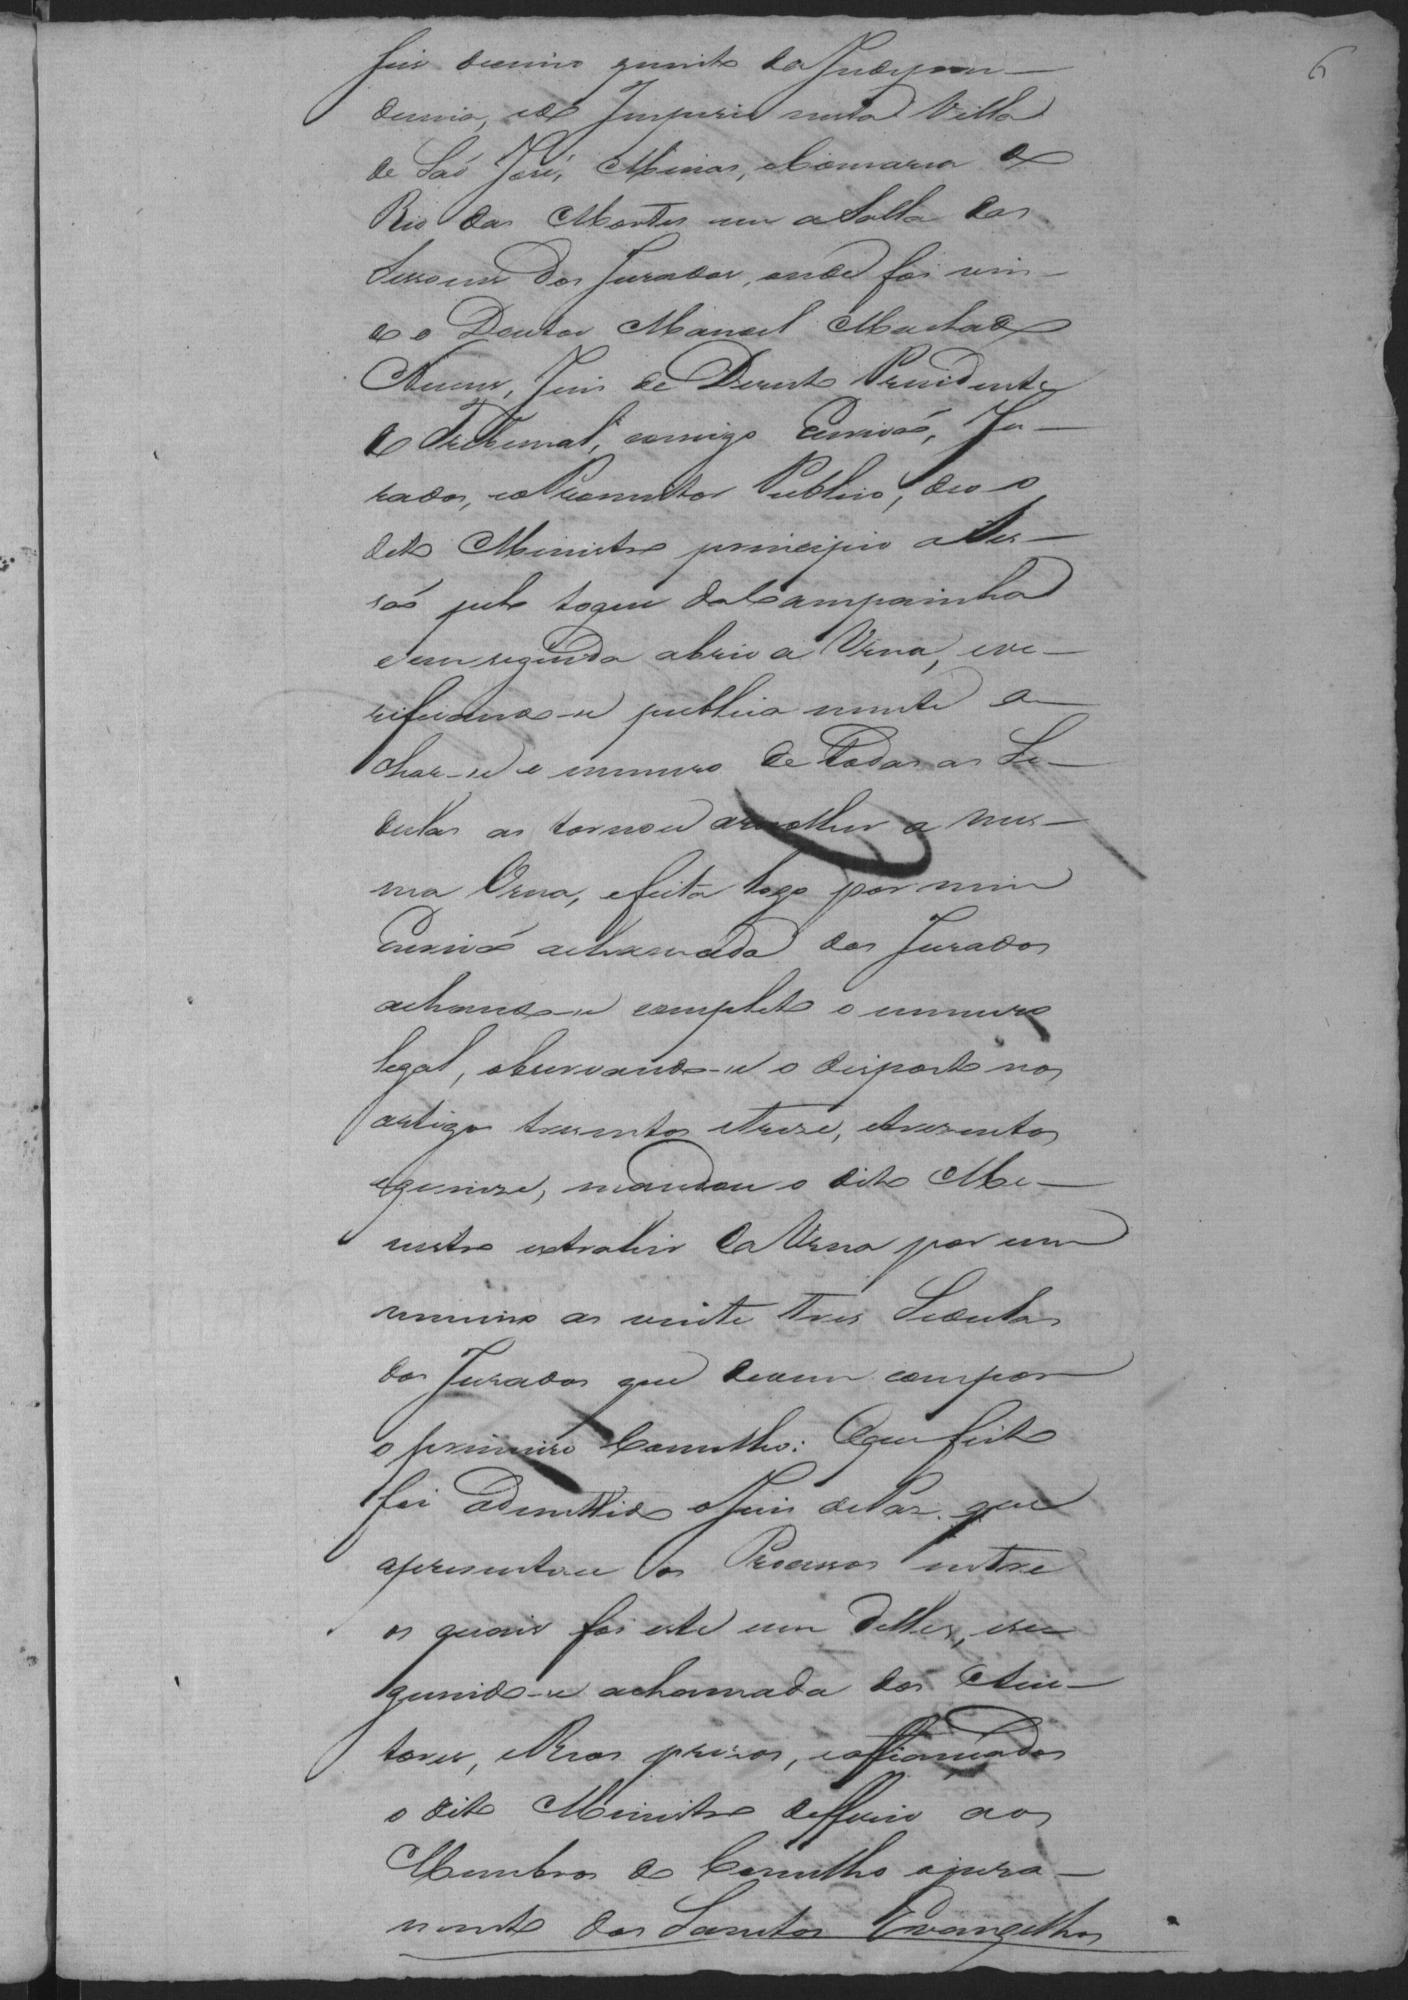 6
seis decimo quinto da Indepen-
dencia, e do Imperio nesta Villa
de São José, Minas, e Comarca do
Rio das Mortes em a Salla das
Sessoens dos Jurados, onde foi vin-
do o Doutor Manoel Machado
Nunes, Juis de Direito Presidente
do Tribunal, comigo Escrivão, Ju-
rados, e o Promotor Publico, deo o
dito Ministro principio a Ses-
são pelo toque da Campainha
e em seguida abrio a Urna, e ve-
rificando-se publica mente a-
char-se o numero de todas as Se-
dulas as tornou a recolher a mes-
ma Urna, e feita logo por mim
Escrivão a chamada dos Jurados
achando-se completo o numero
legal, observando-se o disposto nos
artigos trezentos e treze, e trezentos
e quinze, mandou o dito Me-
nistro extrahir da Urna por um
menino as vinte tres Sedulas
dos Jurados que devem compor
o primeiro Conselho: O que feito
foi admittido o Juis de Paz que
apresentou os Processos entre
os quais foi este um delles, e se-
guindo-se a chamada dos Au-
tores, e Reos prezos, e afiançados
o dito Ministro defferio aos
Membros do Conselho o jura-
mento dos Santos Evangelhos